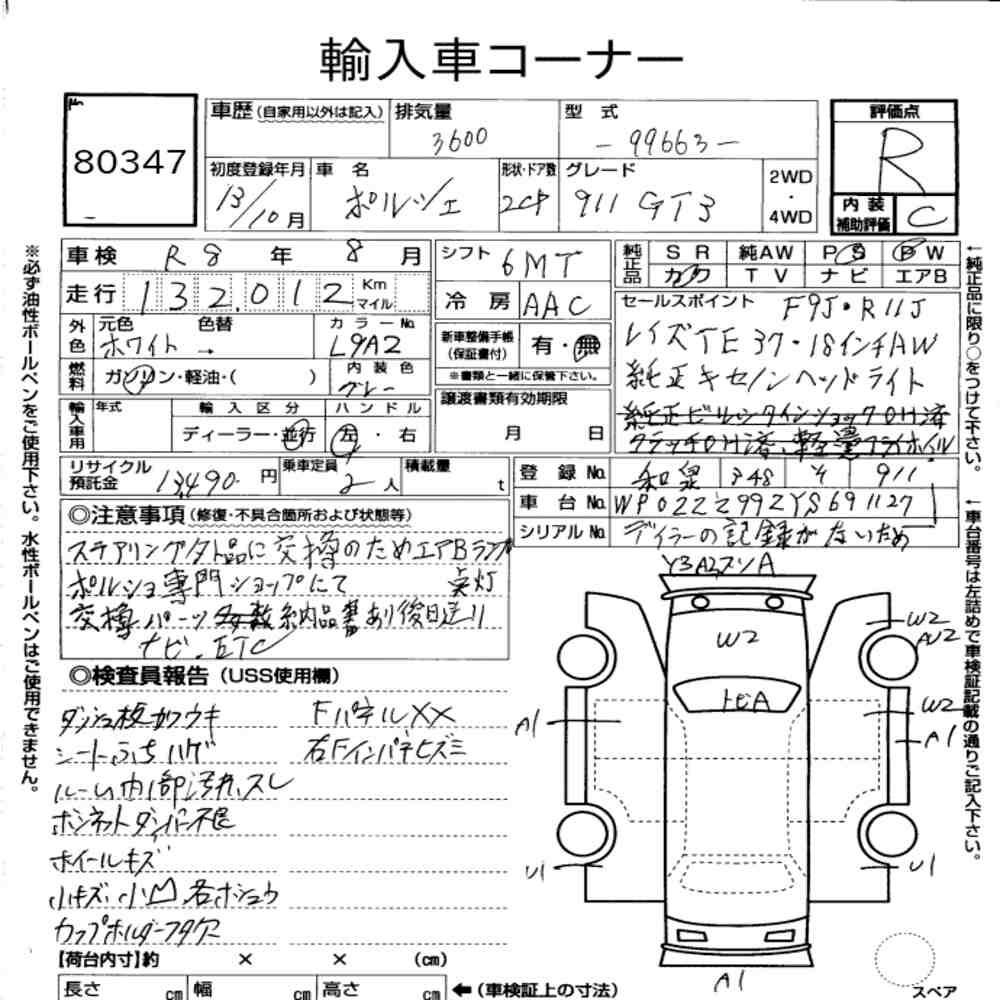 輸入車コーナー
80347
車歴 (自家用以外は記入) 排気量 型式
3600 -99663-
評価点
R
初度登録年月 車名 形状・ドア数 グレード
13/10月 ポルシェ 2CP 911 GT3
2WD
・
4WD
内装
補助評価 C
車検 R8年 8月
シフト 6MT
走行 132,012 Km
マイル
冷房 AAC
純正品 SR 純AW PS PW
カワ TV ナビ エアB
セールスポイント F9J・R11J
レイズTE37・18インチAW
純正キセノンヘッドライト
純正ビルシュタインショックOH済
クラッチOH済、軽量フライホイル
外色 元色 色替 カラーNo.
ホワイト → L9A2
内装色
グレー
燃料 ガソリン・軽油・( )
新車整備手帳
(保証書付) 有・無
※書類と一緒に保管下さい。
輸入車用 年式 輸入区分 ハンドル
ディーラー・並行 左・右
譲渡書類有効期限
月 日
リサイクル
預託金 13,490円 乗車定員 2人 積載量 t
登録No. 和泉 348 911
車台No. WP0ZZZ99ZYS691127
シリアルNo. ディラーの記録がないため
◎注意事項 (修復・不具合箇所および状態等)
ステアリング社外品に交換のためエアBランプ
点灯
ポルシェ専門ショップにて
交換パーツ多数納品書あり後日送り
ナビ、ETC
◎検査員報告 (USS使用欄)
ダッシュ板カワウキ FパネルXX
シートふちハゲ 右Fインパネヒズミ
ルーム内1部汚れ、スレ
ボンネットダンパー不良
ホイールキズ
小キズ、小凹、各ホシュウ
カップホルダーフタ欠
【荷台内寸】約 × × (cm)
長さ cm 幅 cm 高さ cm ← (車検証上の寸法)
W2
トビA
W2
AW2
W2
A1
A1
U1
U1
A1
スペア
※必ず油性ボールペンをご使用下さい。水性ボールペンはご使用できません。
←純正品に限り○をつけて下さい。
←車台番号は左詰めで車検証記載の通りご記入下さい。